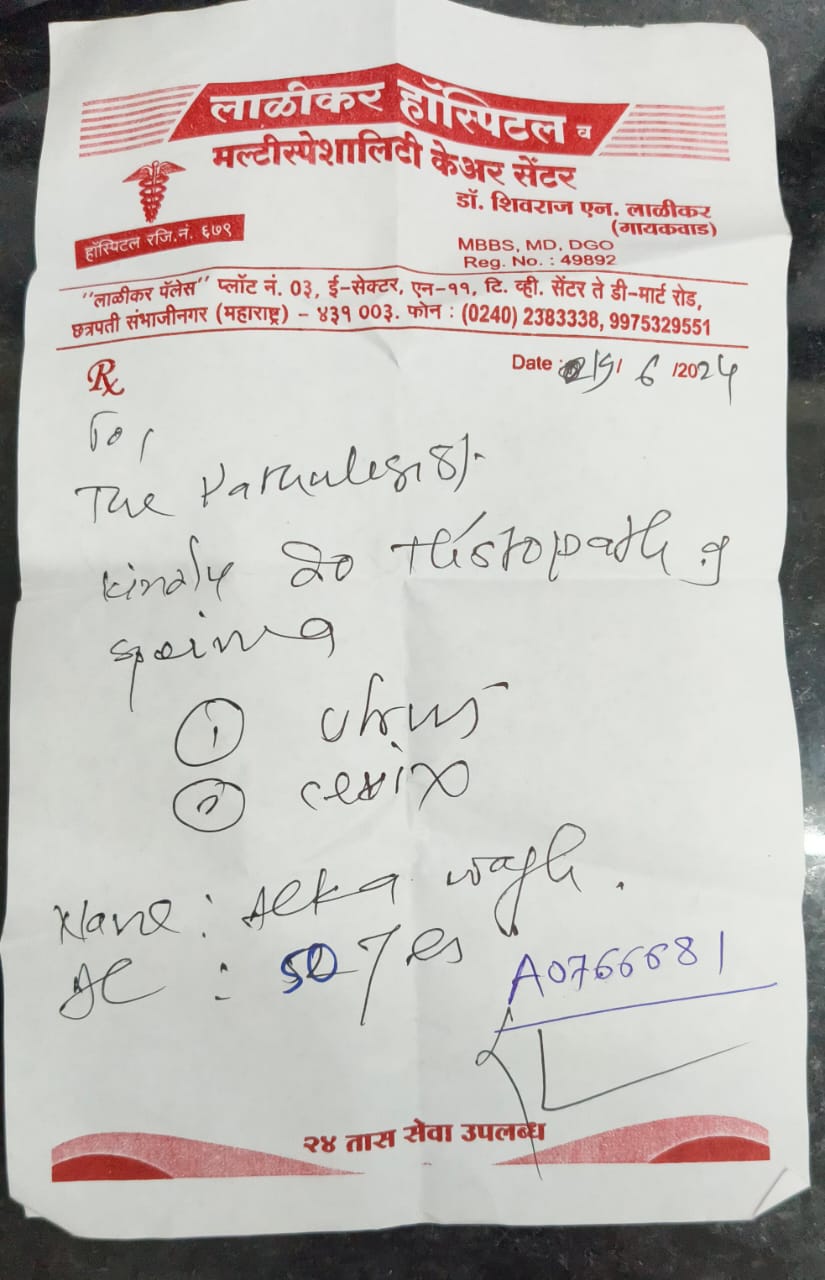 लाळीकर हॉस्पिटल व
मल्टीस्पेशालिटी केअर सेंटर
हॉस्पिटल रजि.नं. ६७९
डॉ. शिवराज एन. लाळीकर
(गायकवाड)
MBBS, MD, DGO
Reg. No. : 49892
"लाळीकर पॅलेस" प्लॉट नं. 03, ई-सेक्टर, एन-११, टि. व्ही. सेंटर ते डी-मार्ट रोड,
छत्रपती संभाजीनगर (महाराष्ट्र) - ४३१ 003. फोन : (0240) 2383338, 9975329551
Rx
Date : / 6 /2024
To,
The Pathologist.
kindly do Histopath of
① utrus
② cervix
Name : Alka wagh.
: 50 yrs
A0766681
२४ तास सेवा उपलब्ध